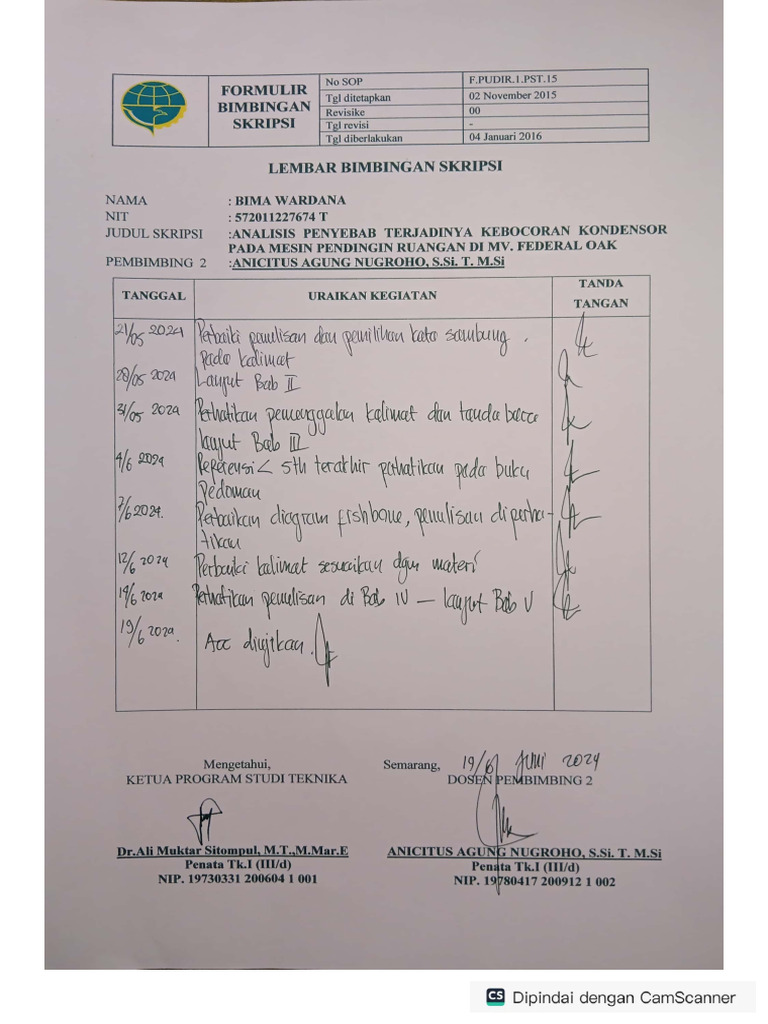 FORMULIR
BIMBINGAN
SKRIPSI
No SOP F.PUDIR.1.PST.15
Tgl ditetapkan 02 November 2015
Revisike 00
Tgl revisi -
Tgl diberlakukan 04 Januari 2016
LEMBAR BIMBINGAN SKRIPSI
NAMA : BIMA WARDANA
NIT : 572011227674 T
JUDUL SKRIPSI :ANALISIS PENYEBAB TERJADINYA KEBOCORAN KONDENSOR
PADA MESIN PENDINGIN RUANGAN DI MV. FEDERAL OAK
PEMBIMBING 2 :ANICITUS AGUNG NUGROHO, S.Si. T. M.Si
TANGGAL URAIKAN KEGIATAN TANDA
TANGAN
21/05 2024 Perbaiki penulisan dan pemilihan kata sambung.
pada kalimat
28/05 2024 Lanjut Bab II
31/05 2024 Perhatikan pemenggalan kalimat dan tanda baca
lanjut Bab III
4/6 2024 Referensi < 5th terakhir perhatikan pada buku
Pedoman
7/6 2024. Perbaikan diagram fishbone, penulisan diperha-
tikan
12/6 2024 Perbaiki kalimat sesuaikan dgn materi
14/6 2024 Perhatikan penulisan di Bab IV – lanjut Bab V
19/6 2024. Acc diujikan.
Mengetahui,
KETUA PROGRAM STUDI TEKNIKA
Dr.Ali Muktar Sitompul, M.T.,M.Mar.E
Penata Tk.I (III/d)
NIP. 19730331 200604 1 001
Semarang, 19/6 Juni 2024
DOSEN PEMBIMBING 2
ANICITUS AGUNG NUGROHO, S.Si. T. M.Si
Penata Tk.I (III/d)
NIP. 19780417 200912 1 002
CS Dipindai dengan CamScanner